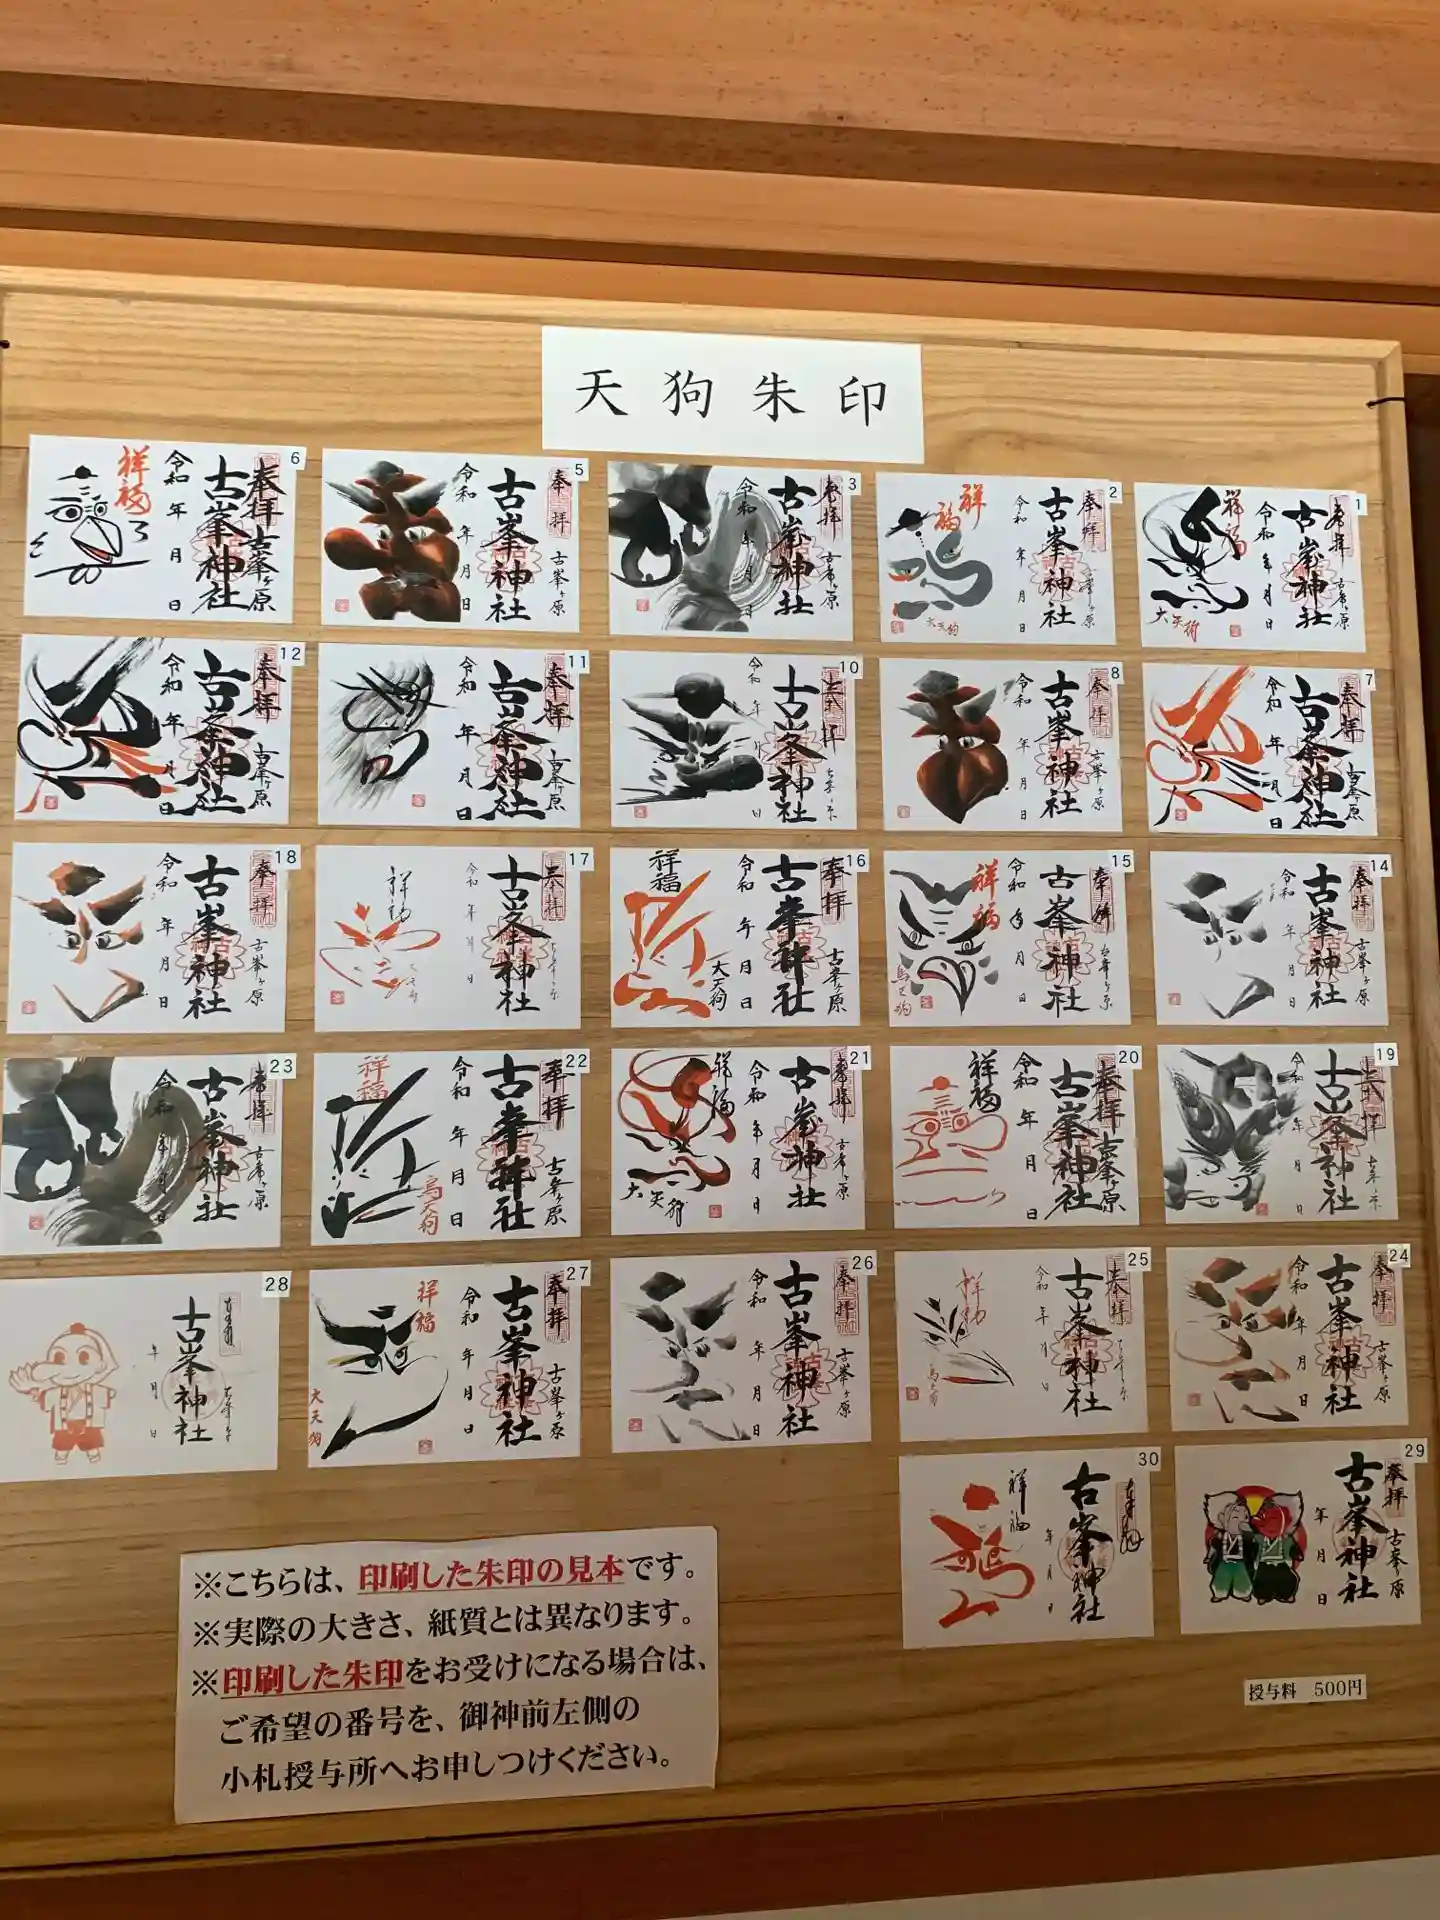 天狗朱印
1
奉拝
古峯神社
古峯ヶ原
祥福
令和 年 月 日
大天狗
2
奉拝
古峯神社
祥福
令和 年 月 日
大天狗
3
奉拝
古峯神社
古峯ヶ原
令和 年 月 日
5
奉拝
古峯神社
古峯ヶ原
令和 年 月 日
6
奉拝
古峯神社
古峯ヶ原
祥福
令和 年 月 日
7
奉拝
古峯神社
古峯ヶ原
令和 年 月 日
8
奉拝
古峯神社
古峯ヶ原
令和 年 月 日
10
古峯神社
令和 年 月 日
11
奉拝
古峯神社
古峯ヶ原
令和 年 月 日
12
奉拝
古峯神社
古峯ヶ原
令和 年 月 日
14
奉拝
古峯神社
古峯ヶ原
令和 年 月 日
15
奉拝
古峯神社
祥福
令和 年 月 日
烏天狗
16
奉拝
古峯神社
古峯ヶ原
祥福
令和 年 月 日
大天狗
17
奉拝
古峯神社
令和 年 月 日
18
奉拝
古峯神社
古峯ヶ原
令和 年 月 日
19
古峯神社
令和 年 月 日
20
奉拝
古峯神社
古峯ヶ原
祥福
令和 年 月 日
21
奉拝
古峯神社
古峯ヶ原
祥福
令和 年 月 日
大天狗
22
奉拝
古峯神社
古峯ヶ原
祥福
令和 年 月 日
烏天狗
23
奉拝
古峯神社
古峯ヶ原
令和 年 月 日
24
奉拝
古峯神社
古峯ヶ原
令和 年 月 日
25
奉拝
古峯神社
令和 年 月 日
26
奉拝
古峯神社
古峯ヶ原
令和 年 月 日
27
奉拝
古峯神社
古峯ヶ原
祥福
令和 年 月 日
大天狗
28
古峯神社
年 月 日
29
奉拝
古峯神社
古峯ヶ原
年 月 日
30
古峯神社
祥福
年 月 日
授与料 500円
※こちらは、印刷した朱印の見本です。
※実際の大きさ、紙質とは異なります。
※印刷した朱印をお受けになる場合は、
ご希望の番号を、御神前左側の
小札授与所へお申しつけください。